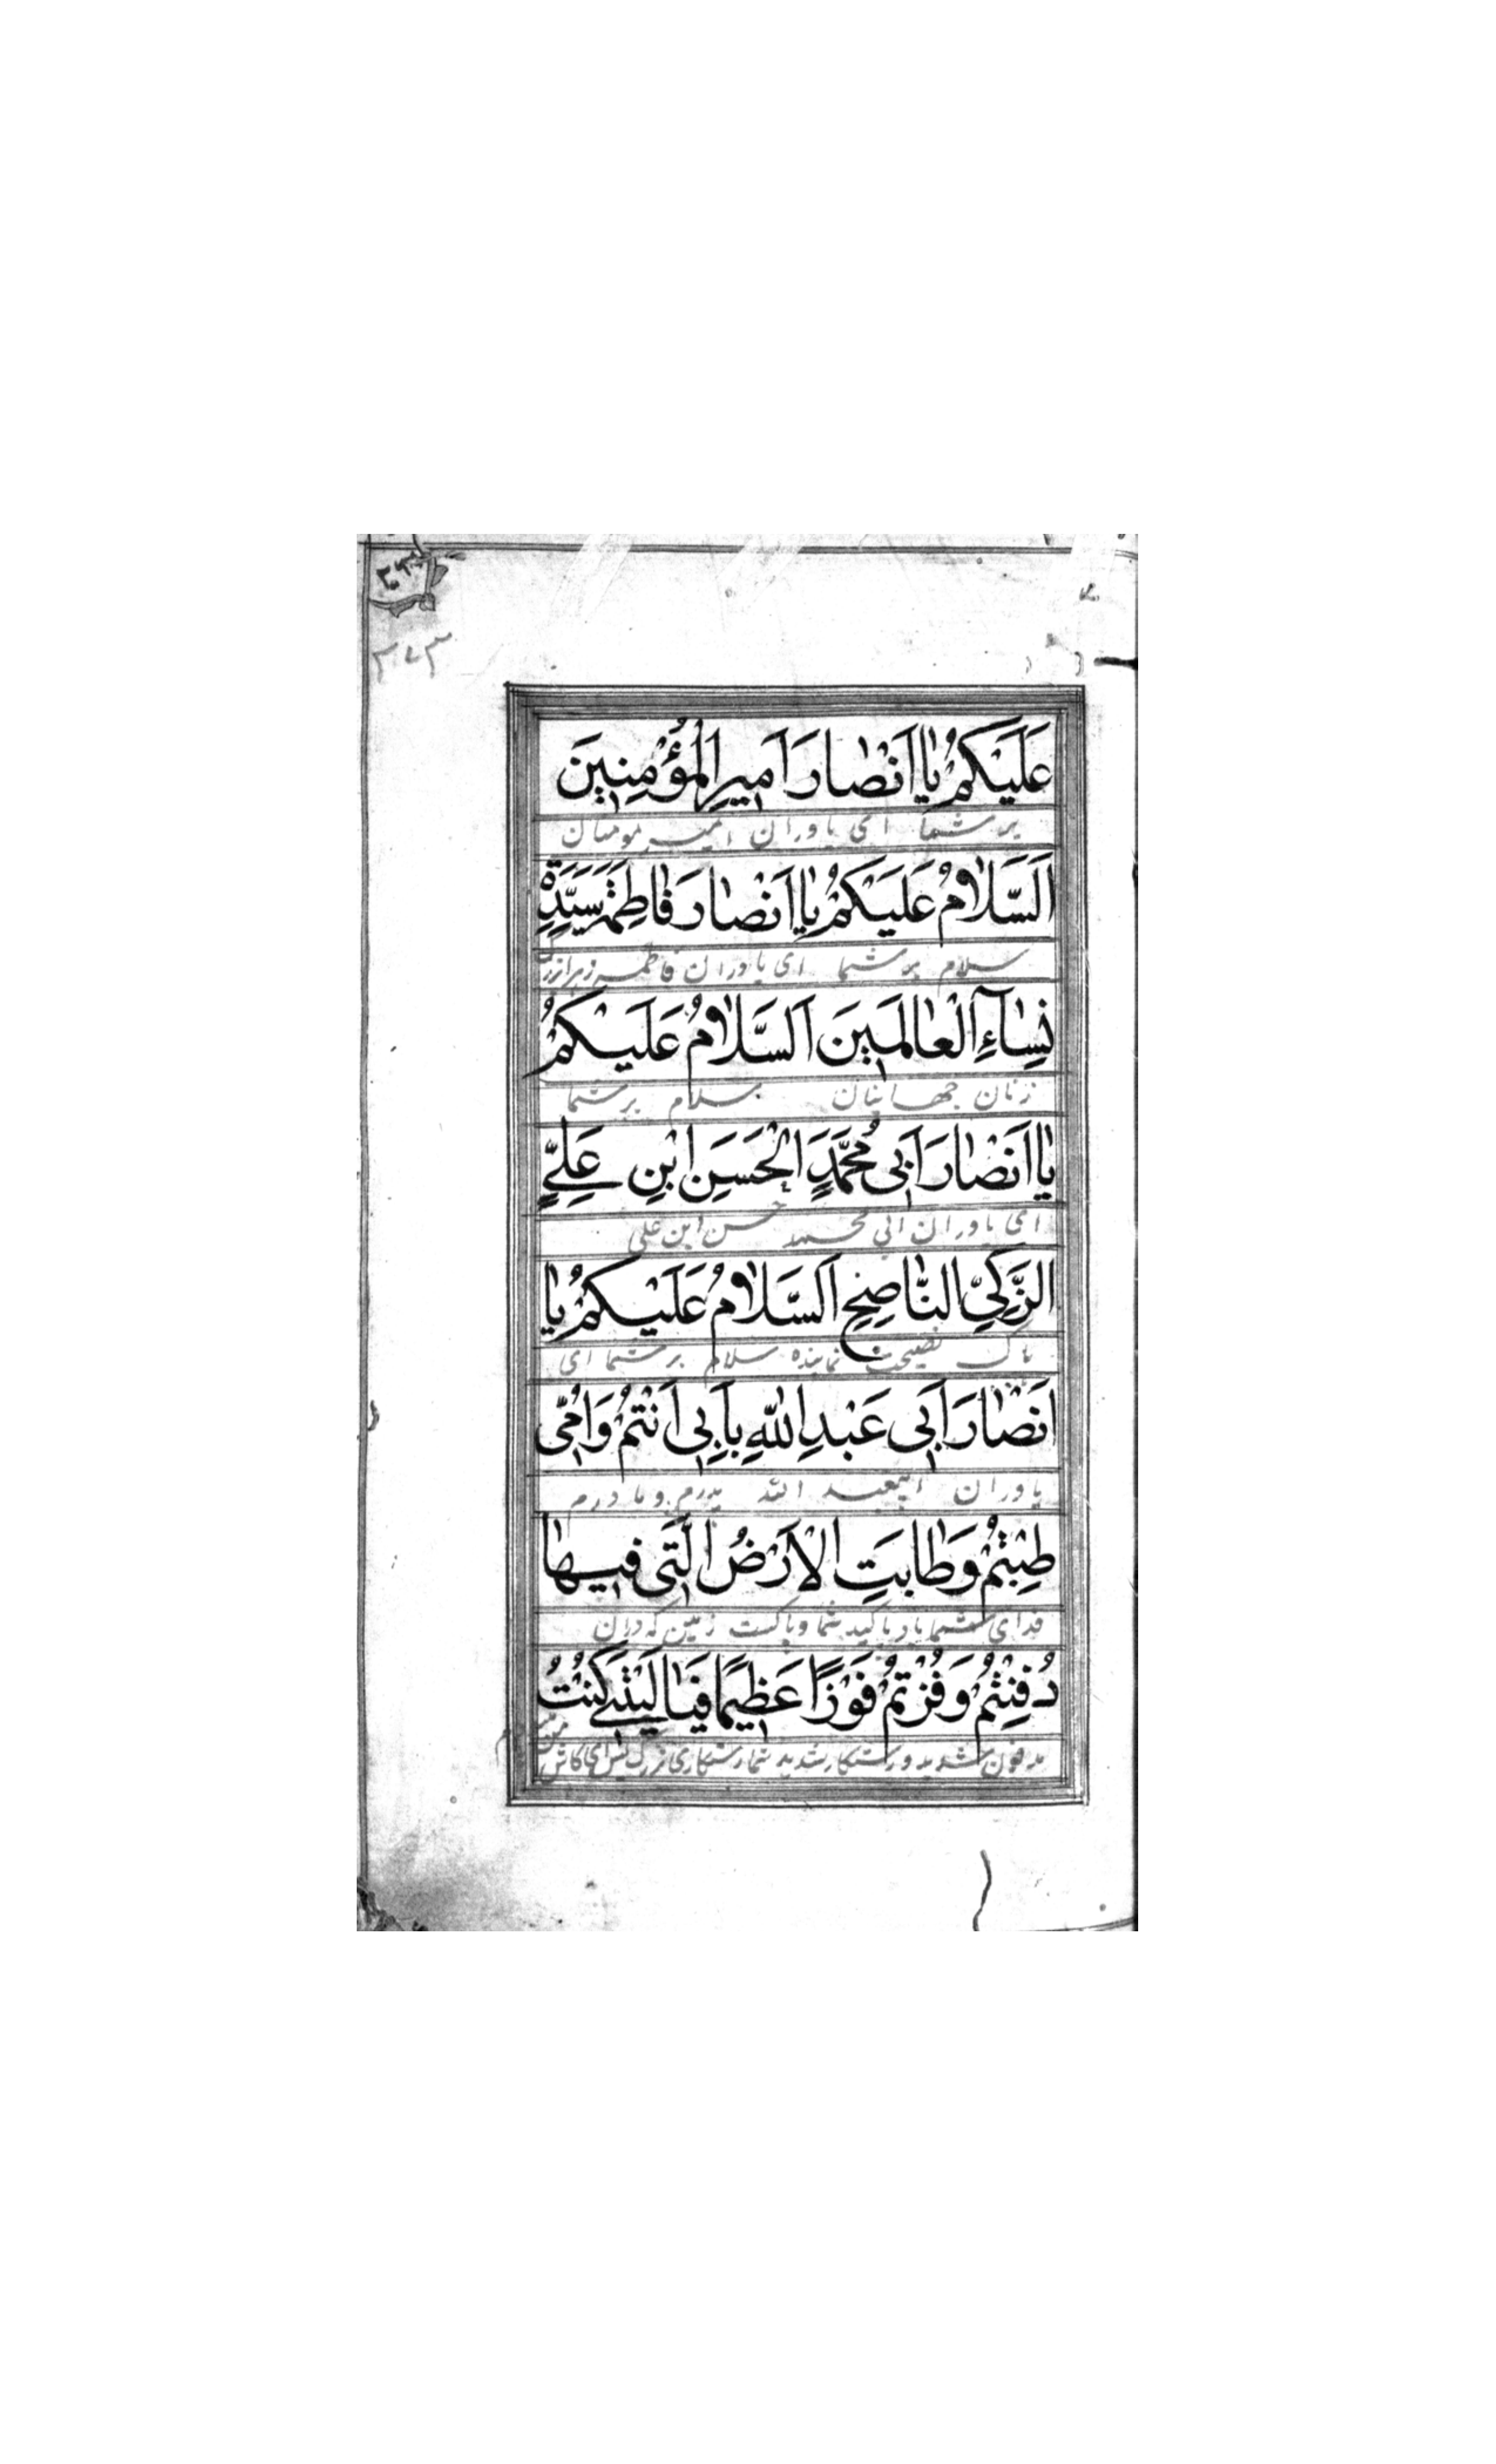 ۳۷۳
عَلَيْكُمْ يا اَنْصارَ اَميرِ الْمُؤْمِنينَ
بر شما ای یاوران امیر مومنان
اَلسَّلامُ عَلَيْكُمْ يا اَنْصارَ فاطِمَةَ سَيِّدَةِ
سلام بر شما ای یاوران فاطمه زهرا
نِساءِ الْعالَمينَ اَلسَّلامُ عَلَيْكُمْ
زنان جهانیان سلام بر شما
يا اَنْصارَ اَبى مُحَمَّدٍ الْحَسَنِ ابْنِ عَلِىٍّ
ای یاوران ابی محمد حسن ابن علی
الزَّكِىِّ النّاصِحِ اَلسَّلامُ عَلَيْكُمْ يا
پاک نصیحت نماینده سلام بر شما ای
اَنْصارَ اَبى عَبْدِ اللّهِ بِاَبى اَنْتُمْ وَ اُمّى
یاوران ابیعبد الله پدرم و مادرم
طِبْتُمْ وَ طابَتِ الْاَرْضُ الَّتى فيها
فدای شما باد پاکید شما و پاکست زمین که دران
دُفِنْتُمْ وَ فُزْتُمْ فَوْزًا عَظيمًا فَيا لَيْتَنى كُنْتُ
مدفون شدید و رستکار شدید شما رستکاری بزرک پس ای کاش